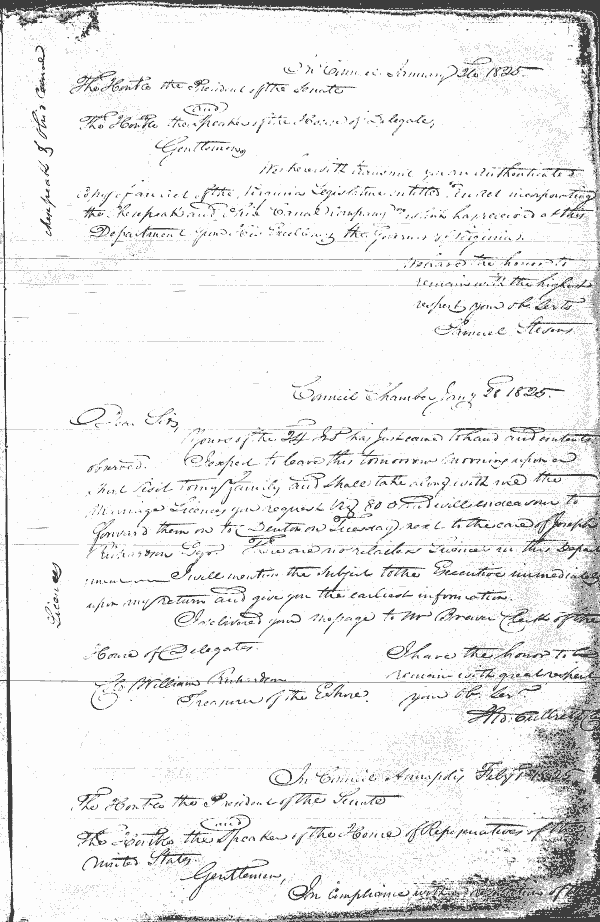 Chesapeak & Ohio Canal
In Council January 26 1825
The Honble the President of the Senate
and
The Honble the Speaker of the House of Delegates,
Gentlemen,
We herewith transmit you an authenticated
Copy of an act of the Virginia Legislature entitled "an act incorporating
the Chesapeak and Ohio Canal Company" which has received at this
Department from his Excellency the Governor of Virginia.
We have the honor to
remain with the highest
respect your ob. Serts
Samuel Stevens
Council Chamber Jany 28 1825.
Dear Sir,
Yours of the 24 Inst has just came to hand and contents
observed. I expect to leave this tomorrow morning upon a
short visit to my family and shall take along with me the
Marriage Licences you request Viz 80 and will endeavour to
forward them on to Denton on Tuesday next to the care of Joseph
Richardson Esqr. There are no retailers Licences in this Depart
ment I will mention the subject to the Executive immediately
upon my return and give you the earliest information.
Licences
I delivered your message to Mr Brewer Clerk of the
House of Delegates.
I have the honor to be
remain with great respect
your Ob. Sert
Col William Richardson
Treasurer of the E shore.
Thos. Culbreth
In Council Annapolis Feby 1825
The Honble the President of the Senate
and
The Honble the Speaker of the House of Representatives of the
United States.
Gentlemen,
In compliance with